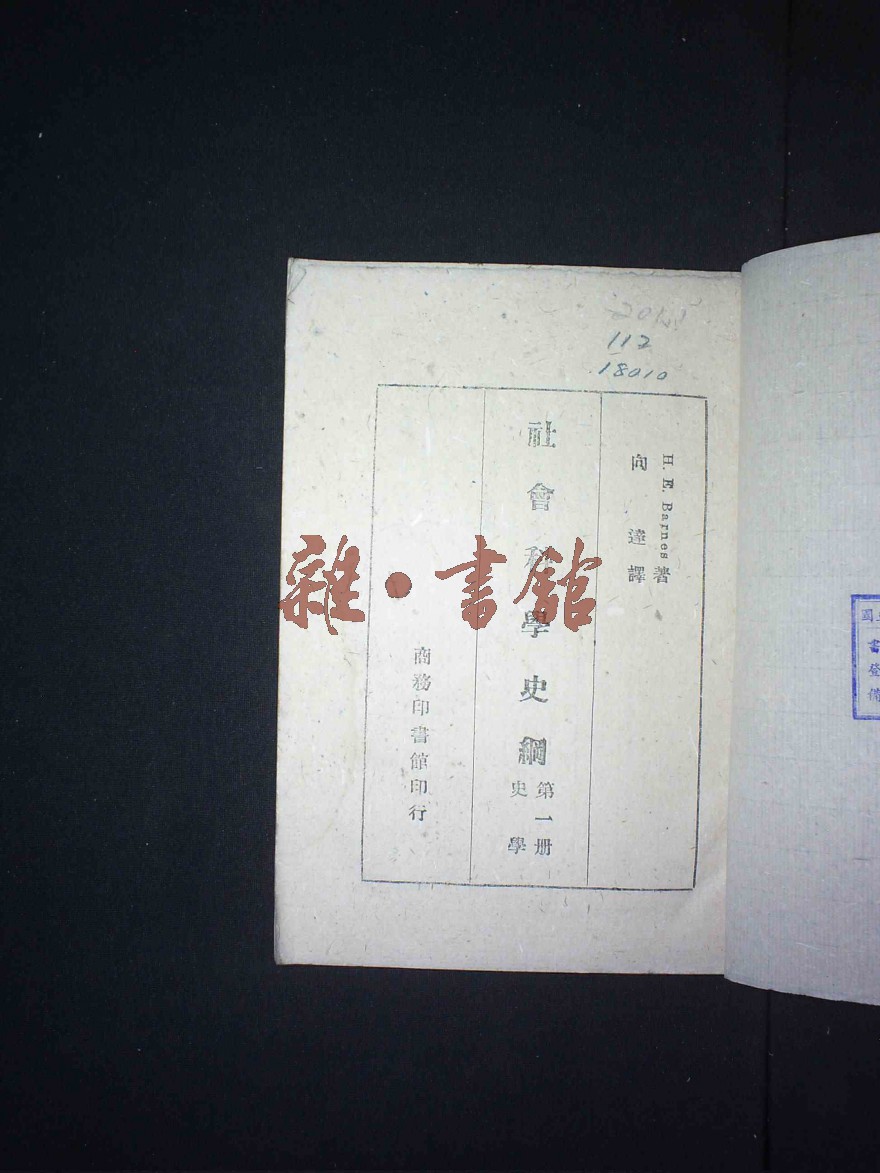 112
18010
H. E. Barnes 著
向達譯
社會科學史綱
第一册
史學
商務印書館印行
雜·書館